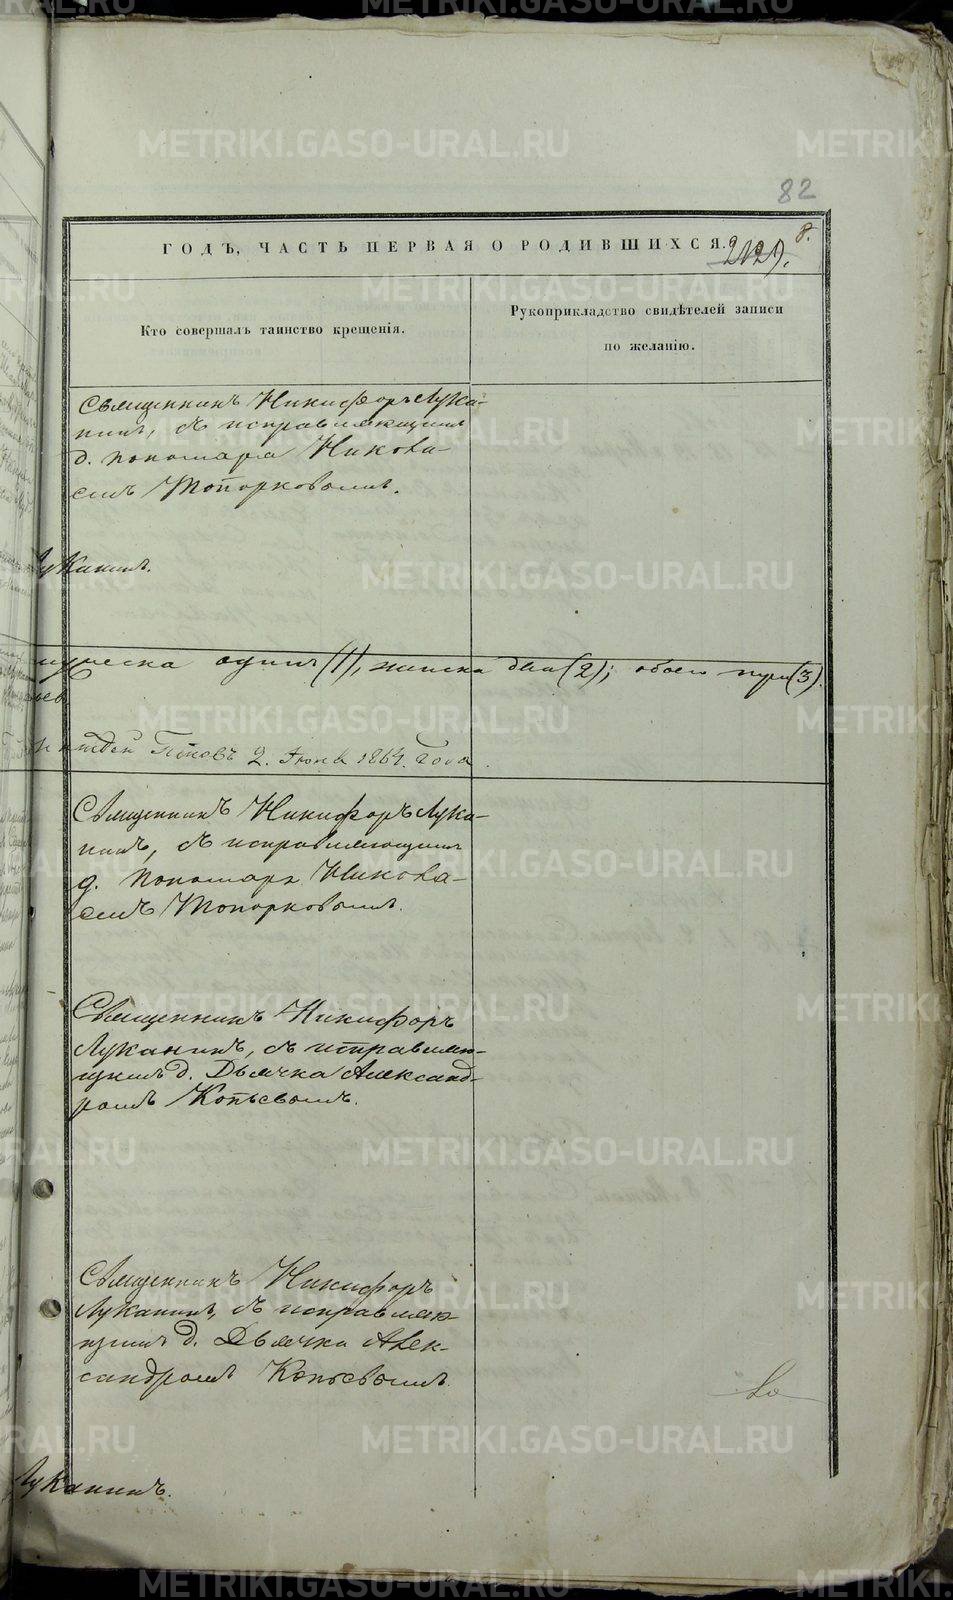 82
ГОДЪ, ЧАСТЬ ПЕРВАЯ О РОДИВШИХСЯ.
8.
Кто совершалъ таинство крещенія.
Рукоприкладство свидѣтелей записи
по желанію.
Священникъ Никифоръ Лука-
нинъ, съ исправляющимъ
д. пономаря Никола-
емъ Топорковымъ.
Луканинъ.
мужеска одинъ (1), женска два (2); обоего три (3).
2. Іюня 1864. Года.
Священникъ Никифоръ Лука-
нинъ, съ исправляющимъ
д. пономаря Никола-
емъ Топорковымъ.
Священникъ Никифоръ
Луканинъ, съ исправляю-
щимъ д. Дьячка Александ-
ромъ Копьевымъ.
Священникъ Никифоръ
Луканинъ, съ исправляю-
щимъ д. Дьячка Алек-
сандромъ Копьевымъ.
Луканинъ.
METRIKI.GASO-URAL.RU